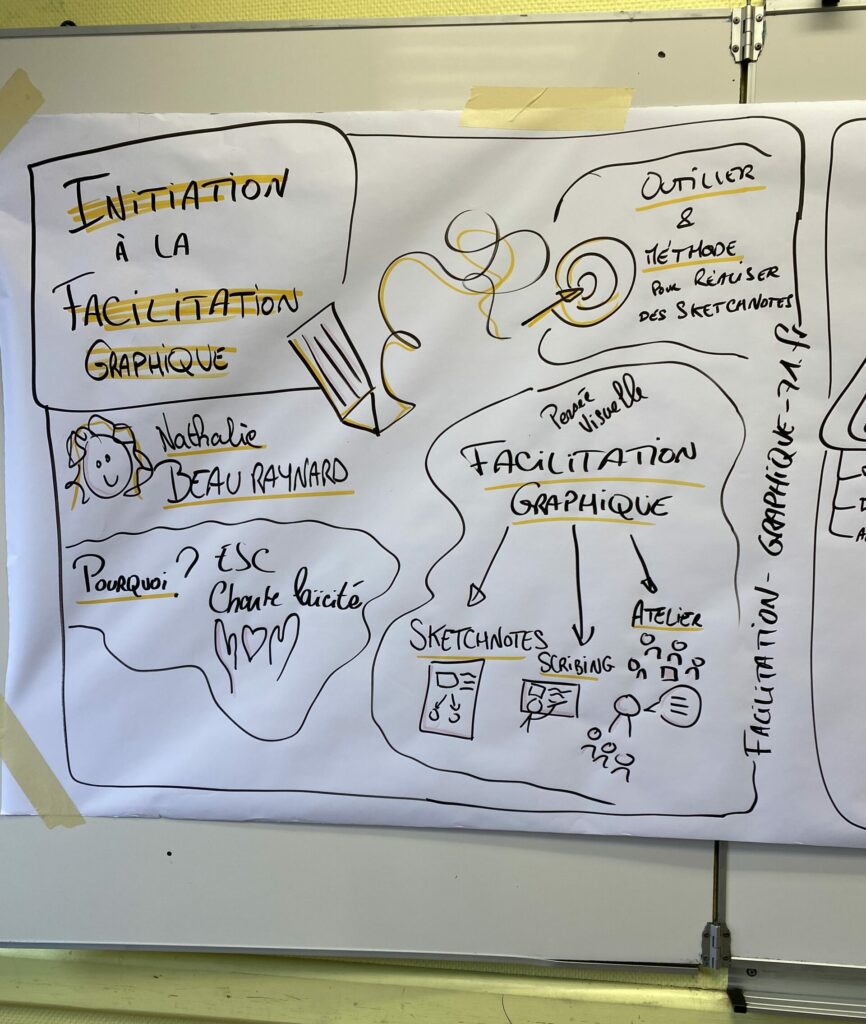 INITIATION
À LA
FACILITATION
GRAPHIQUE
OUTILLER
&
MÉTHODE
POUR RÉALISER
DES SKETCHNOTES
Nathalie
BEAU RAYNARD
POURQUOI ?
ESC
Charte laïcité
Pensée
Visuelle
FACILITATION
GRAPHIQUE
SKETCHNOTES
SCRIBING
ATELIER
FACILITATION-GRAPHIQUE-71.fr